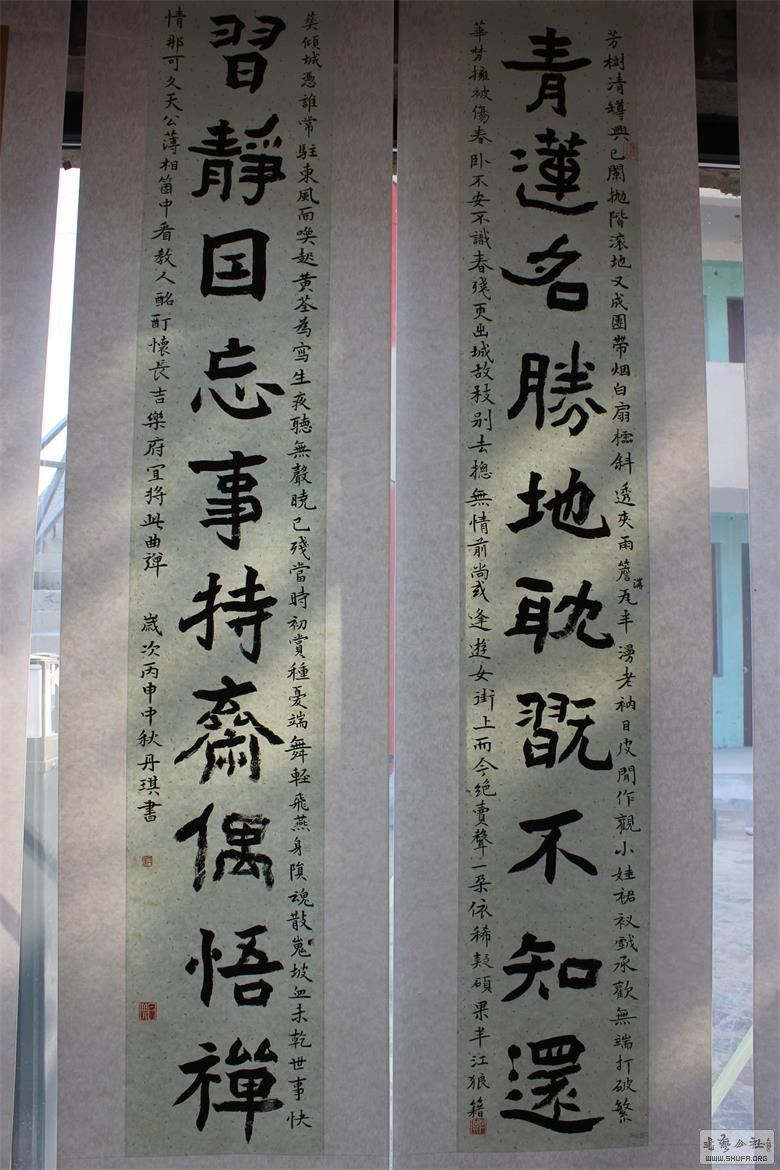 芳樹清罇興已闌拋階滾地又成團帶烟白扇檽斜透夾雨簷溝瓦半湧老衲目皮閒作觀小娃裙衩戲承歡無端打破繁
青蓮名勝地耽翫不知還
華夢擁被傷春卧不安不識春殘更出城故枝别去摠無情前尚或逢遊女街上而今絕賣聲一朶依稀疑碩果半江狼籍
英傾城憑誰常駐東風面喚起黃荃為寫生夜聽無聲曉已殘當時初賞種憂端舞輕飛燕身隕魂散嵬坡血未乾世事快
習靜国忘事持齋偶悟禪
情那可久天公薄相箇中看教人酩酊懷長吉樂府宜將此曲彈 歲次丙申中秋丹琪書
书艺公社
WWW.SHUFA.ORG